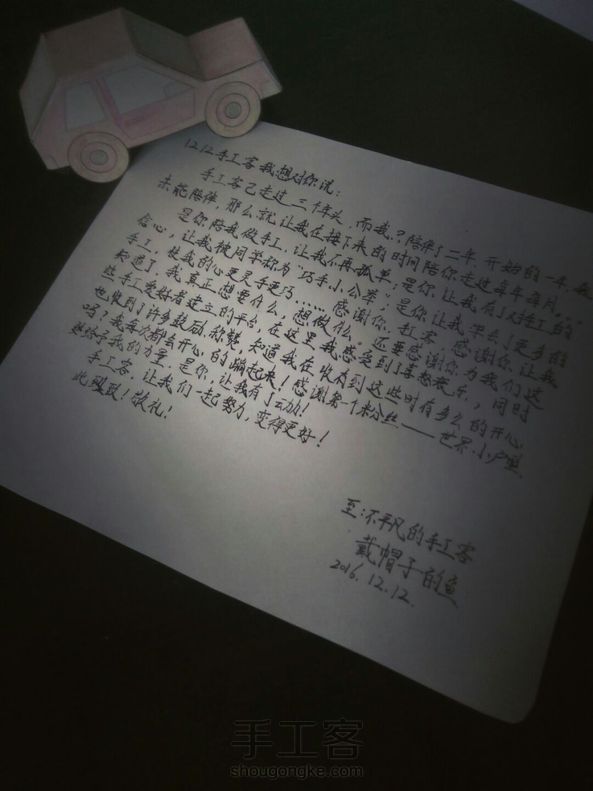 12.12手工客我想对你说:
手工客已走过三个年头,而我?陪伴了二年,开始的一年我
未能陪伴,那么就让我在接下来的时间陪你走过每年每月。
是你陪我做手工,让我不再孤单,是你,让我有了对手工的
恋心,让我被同学称为"巧手小公举",是你,让我学会了更多的
手工,使我的心更灵手更巧……感谢你,手工客,感谢你,让我
知道了,我真正想要什么,想做什么,还要感谢你为我们这
些手工爱好者建立的平台,在这里我感受到了喜怒哀乐,同时
也收到了许多鼓励,称赞,知道我在收到这些时有多么的开心
吗?我每次都会开心的蹦起来!感谢第一个粉丝——世界小户型
她给予我的力量,是你,让我有了动力!
手工客,让我们一起努力,变得更好!
此致!敬礼!
至:不平凡的手工客
戴帽子的鱼
2016.12.12.
手工客
shougongke.com